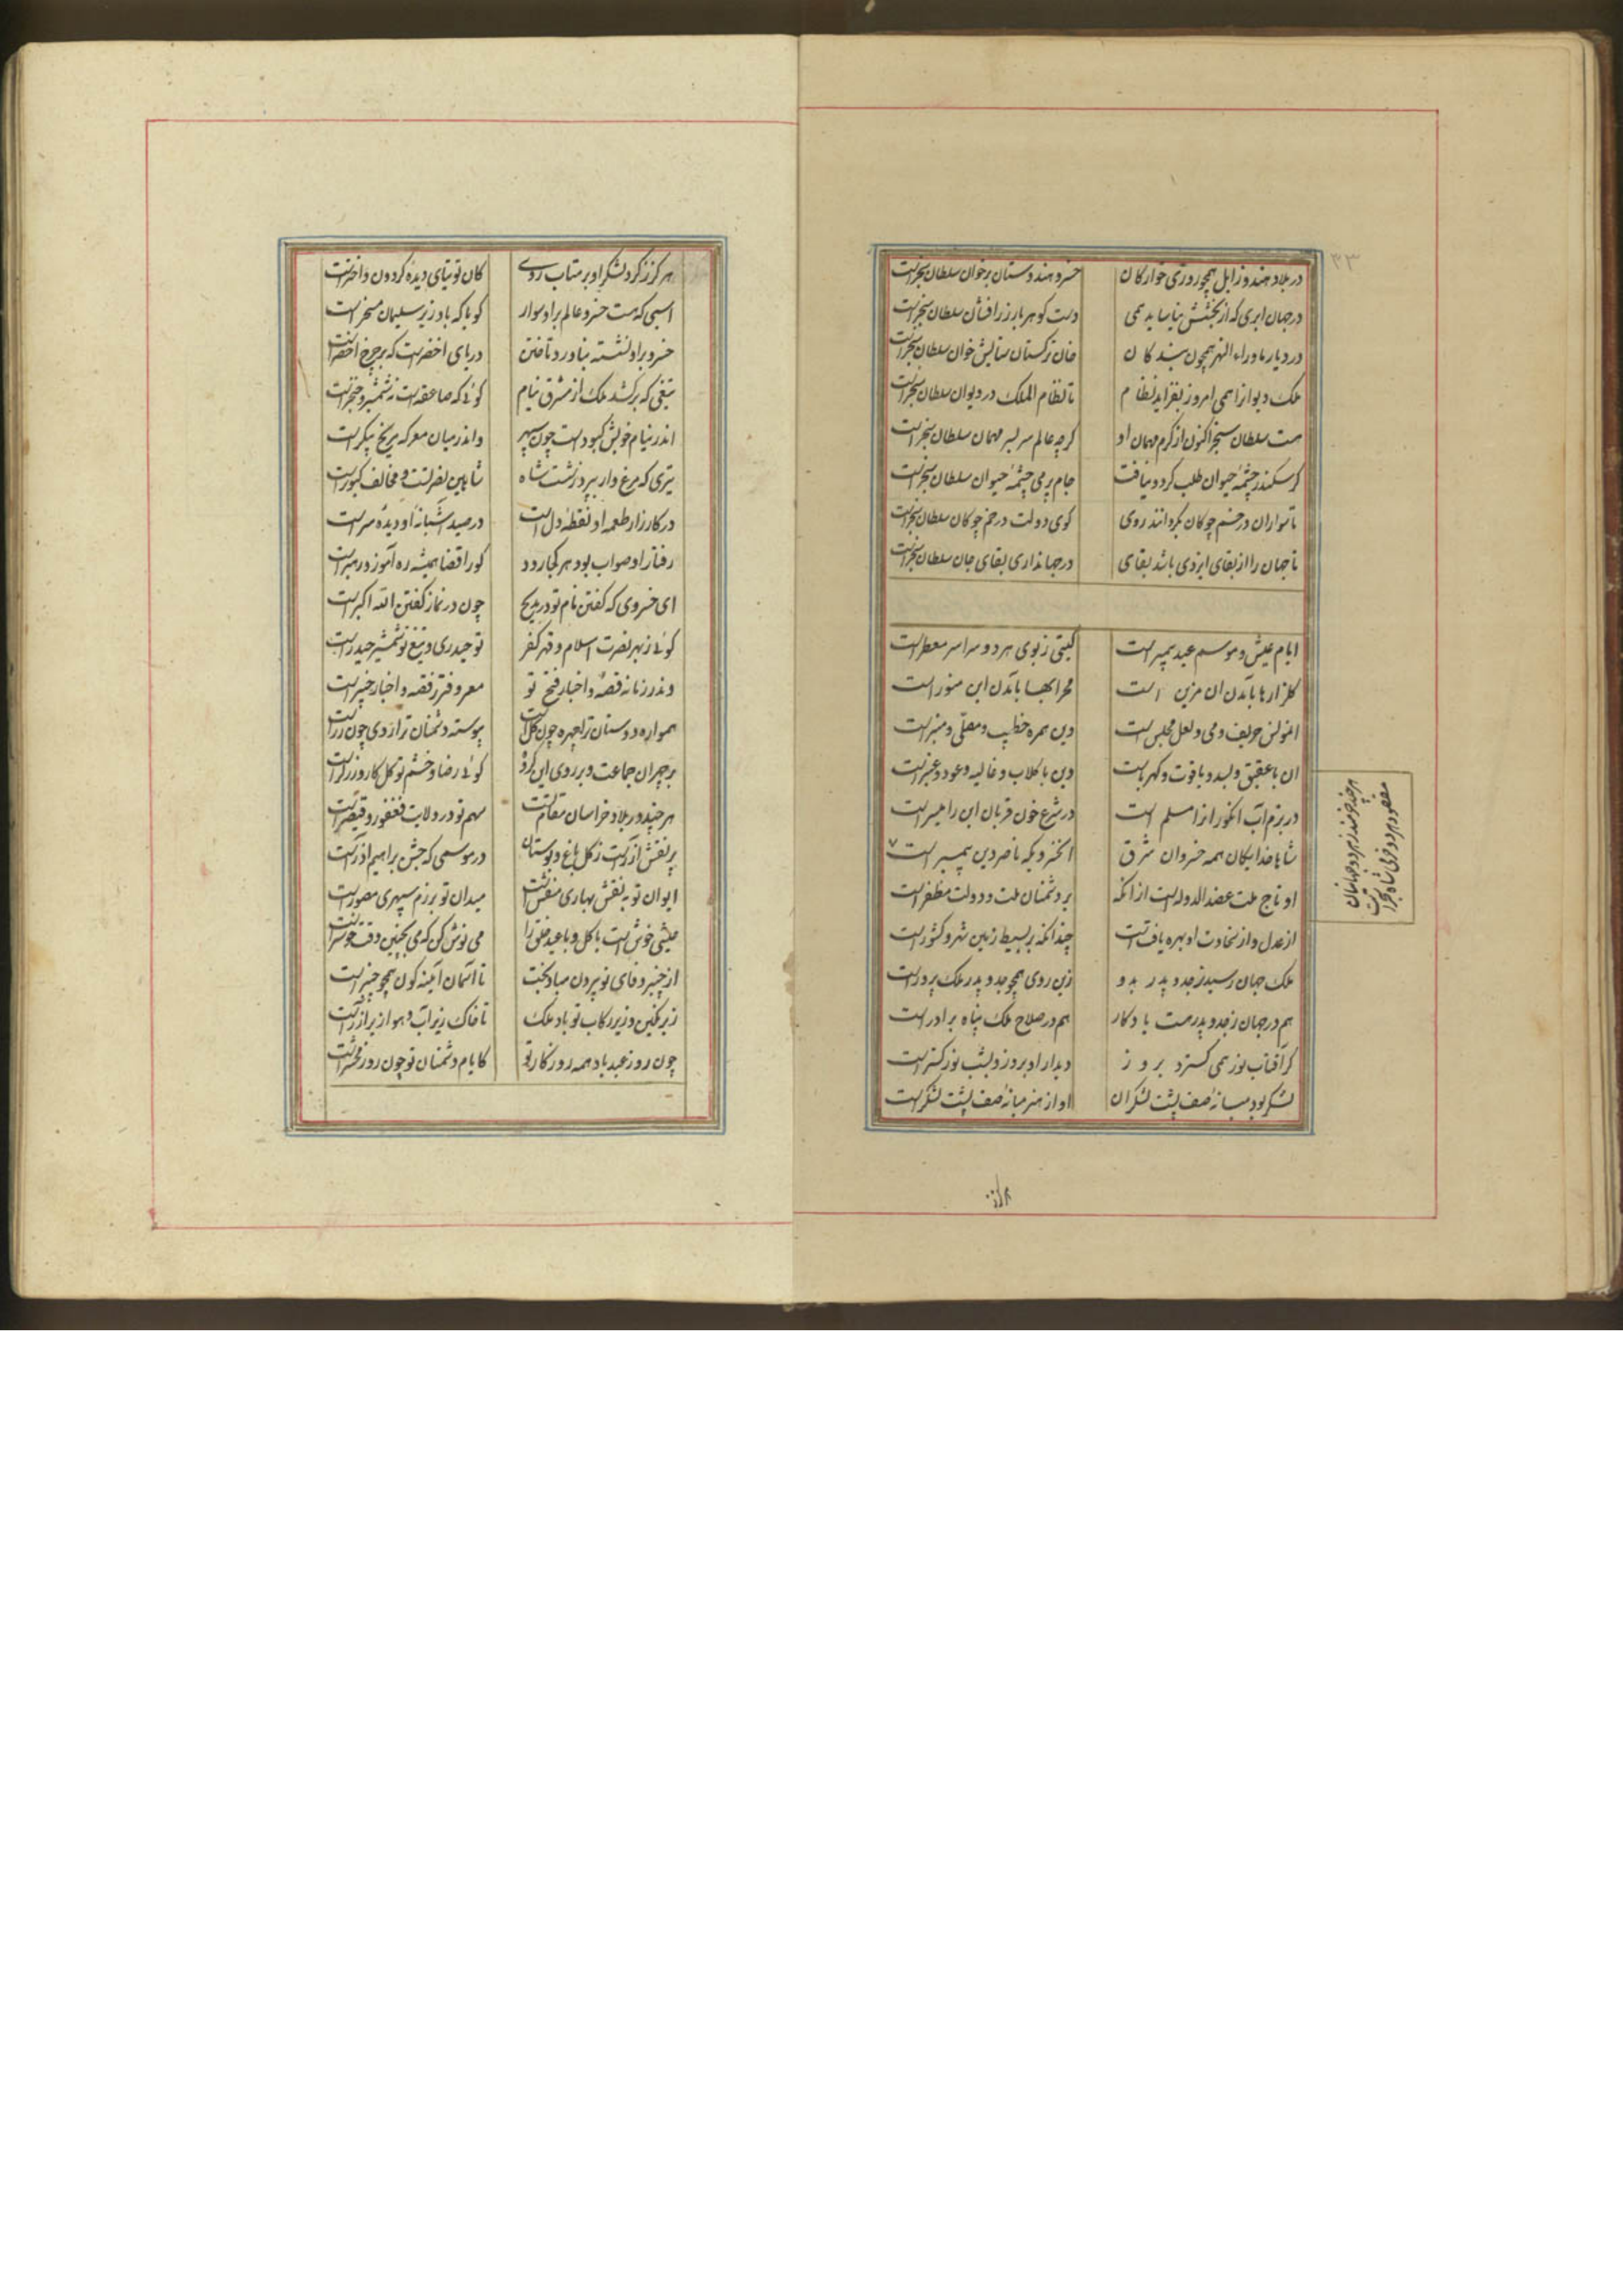 ۳۳
در بلاد هند و زابل همچو روزی خوارکان خسرو هندوستان برخوان سلطان سنجرست
در جهان ابری که از بخشش نیاساید همی دست کوهربار زرافشان سلطان سنجرست
در دیار ماوراء النهر همچون بندکان خان ترکستان ستایش خوان سلطان سنجرست
ملک و دیوان را همی امروز بفزاید نظام تا نظام الملک در دیوان سلطان سنجرست
هست سلطان سنجر اکنون از کرم مهمان او کرچه عالم سربسر مهمان سلطان سنجرست
کر سکندر چشمه حیوان طلب کرد و نیافت جام پر می چشمه حیوان سلطان سنجرست
تا سواران در خم چوکان بکردانند روی کوی دولت در خم چوکان سلطان سنجرست
تا جهان را از بقای ایزدی باشد بقای در جهانداری بقای جان سلطان سنجرست
ایام عیش و موسم عید پیمبرست کیتی ز بوی هر دو سراسر معطرست
کلزارها بآمدن آن مزین است محرابها بآمدن این منورست
آن مونس حریف و می و لعل مجلس است وین همره خطیب و مصلی و منبرست
ان با عقیق و لبد و یاقوت و کهرباست وین با کلاب و غالیه و عود و عنبرست
در بزم آب انکور آنرا مسلم است در شرع خون قربان این را میسرست
شاها خدایکان همه خسروان شرق آن خسرویکه ناصر دین پیمبرست ۷
هر چند خرمند ز هر دو جهانیان
مقصود هر دو خرمی شاه سنجرست
او تاج ملت عضد الدوله است از آنکه بر دشمنان ملت و دولت مظفرست
از عدل و از سخاوت او بهره یافتست چندانکه بر بسیط زمین شهر و کشورست
ملک جهان رسید ز جد و پدر بدو زین روی همچو جد و پدر ملک پرورست
هم در جهان ز جد و پدر هست یادکار هم در صلاح ملک پناه برادرست
کر آفتاب نور همی کسترد بروز دیدار او بروز و بشب نور کسترست
لشکر بود میانهٔ صف پشت لشکران او از هنر میانهٔ صف پشت لشکرست
هرکز ز کرد لشکر او بر متاب روی کان توتیای دیده کردون و اخترست
اسبی که هست خسرو عالم برو سوار کویا که باد زیر سلیمان مسخرست
خسرو برو نشسته بناورد تاختن دریای اخضرست که بر چرخ اخضرست
تیغی که برکشد ملک از مشرق نیام کوئی که صاعقه است نه شمشیر و خنجرست
اندر نیام خویش کبودست چون سپهر واندر میان معرکه مریخ پیکرست
تیری که مرغ وار بپرد ز شست شاه شاهین نصرتست و مخالف کبوترست
در کارزار طعمه او نقطهٔ دل است در صید آشیانه او دیده سرست
رفتار او صواب بود هر کجا رود کورا قضا همیشه ره آموز و رهبرست
ای خسروی که کفتن نام تو در مدیح چون در نماز کفتن الله اکبرست
کوئی ز بهر نصرت اسلام و قهر کفر تو حیدری و تیغ تو شمشیر حیدرست
وندر زمانه قصه و اخبار فتح تو معروفتر ز قصه و اخبار خیبرست
همواره دوستان ترا چهره چون کل است پیوسته دشمنان ترا روی چون زرست
بر چهر آن جماعت و بر روی این کروه کوئی رضا و خشم تو کلکار و زرکرست
هر چند در بلاد خراسان مقام تست سهم تو در ولایت فغفور و قیصرست
پر نقش آزرست ز کل باغ و بوستان در موسمی که جشن براهیم آزرست
ایوان تو به نقش بهاری منقش است میدان تو برزم سپهری مصورست
عیشی خوش است با کل و با عید خلق را می نوش کن که می بچنین وقت خوشترست
از چنبر وفای تو بیرون مباد بخت تا آسمان آینه کون همچو چنبرست
زیر نکین و زیر رکاب تو باد ملک تا خاک زیر آب و هوا زیر آذرست
چون روز عید باد همه روزکار تو کایام دشمنان تو چون روز محشرست